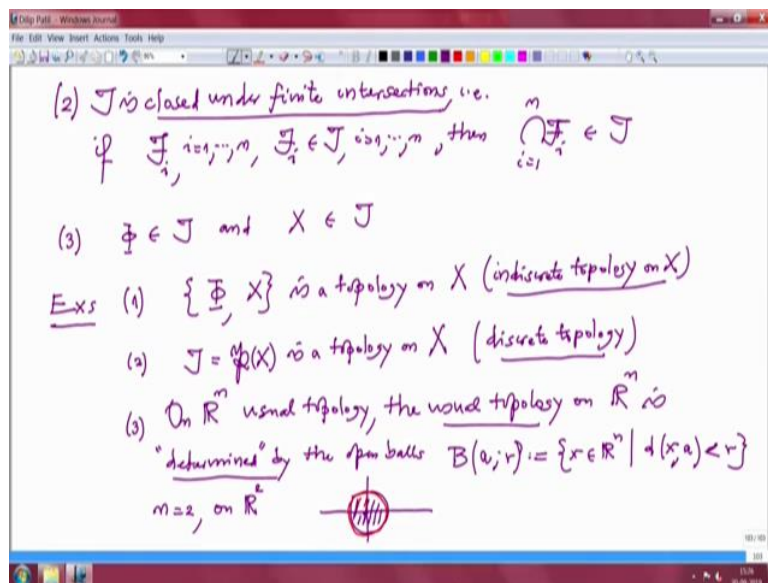 Dilip Patil - Windows Journal
File Edit View Insert Actions Tools Help
(2) J is closed under finite intersections, i.e.
if F_i, i=1,...,n, F_i ∈ J, i=1,...,n, then ⋂_{i=1}^{n} F_i ∈ J
(3) Φ ∈ J and X ∈ J
Exs (1) {Φ, X} is a topology on X (indiscrete topology on X)
(2) J = 𝔓(X) is a topology on X (discrete topology)
(3) On ℝ^n usual topology, the usual topology on ℝ^n is
"determined" by the open balls B(a;r) := {x ∈ ℝ^n | d(x,a) < r}
n=2, on ℝ^2
103/103
103
15:26